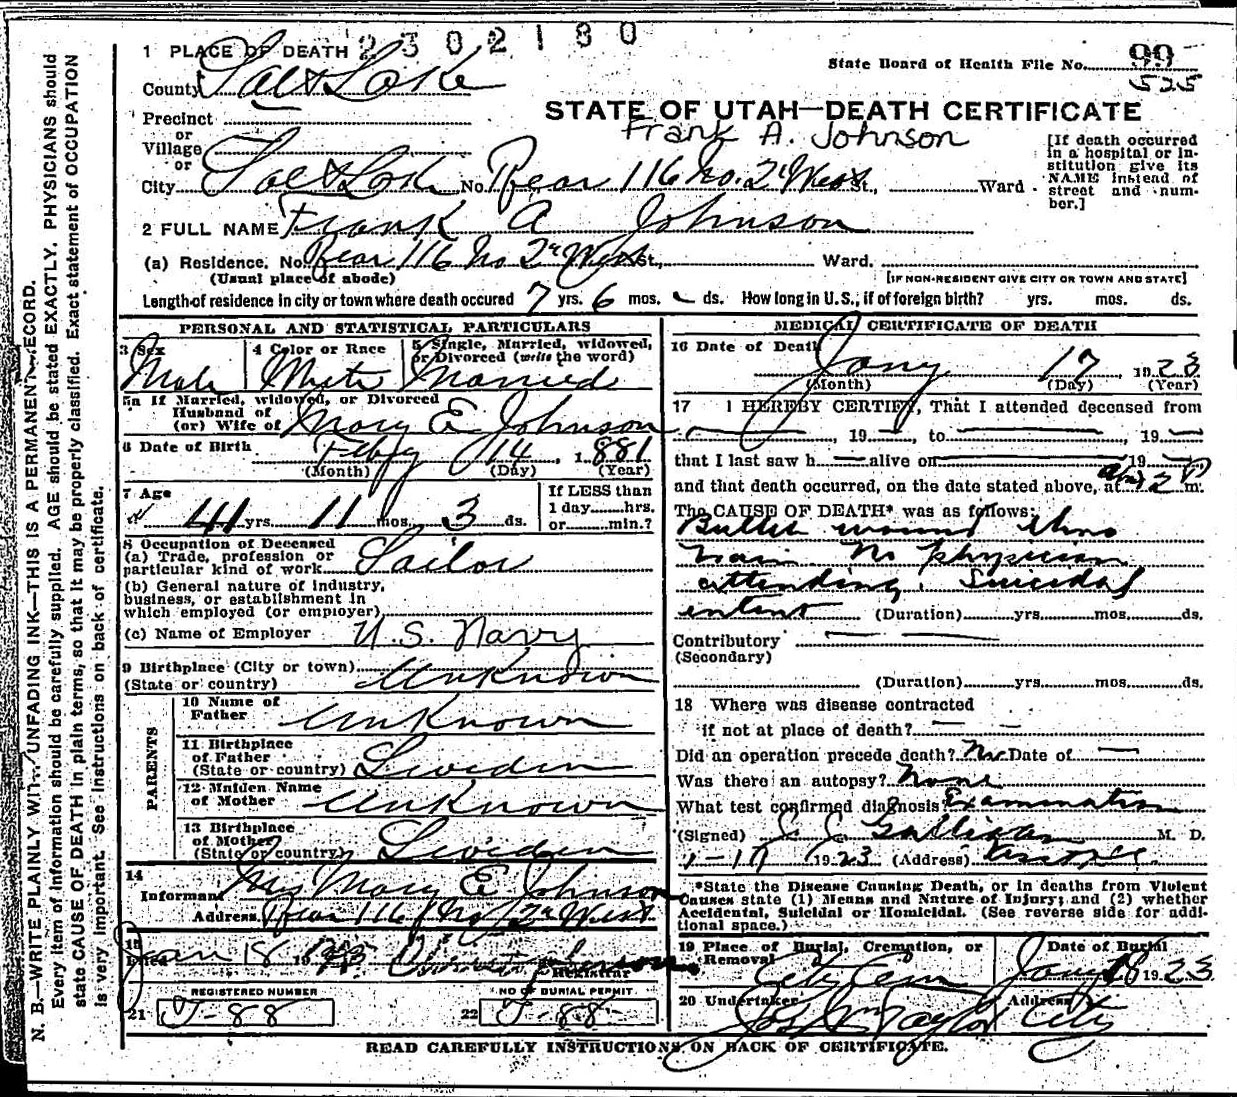 2302180
1 PLACE OF DEATH
State Board of Health File No. 99
525
County Salt Lake
STATE OF UTAH—DEATH CERTIFICATE
Precinct
or
Village
or
Frank A. Johnson
[If death occurred in a hospital or institution give its NAME instead of street and number.]
City Salt Lake No. Rear 116 No. 2d West St., Ward
2 FULL NAME Frank A Johnson
(a) Residence, No. Rear 116 No 2d West St., Ward.
(Usual place of abode) [IF NON-RESIDENT GIVE CITY OR TOWN AND STATE]
Length of residence in city or town where death occured 7 yrs. 6 mos. ds. How long in U. S., if of foreign birth? yrs. mos. ds.
PERSONAL AND STATISTICAL PARTICULARS
3 Sex
Male
4 Color or Race
White
5 Single, Married, widowed, or Divorced (write the word)
Married
5a If Married, widowed, or Divorced
Husband of
(or) Wife of Mary E Johnson
6 Date of Birth Feby 14, 1881
(Month) (Day) (Year)
7 Age
41 yrs. 11 mos. 3 ds.
If LESS than
1 day......hrs.
or......min.?
8 Occupation of Deceased
(a) Trade, profession or
particular kind of work Sailor
(b) General nature of industry,
business, or establishment in
which employed (or employer)
(c) Name of Employer U.S. Navy
9 Birthplace (City or town)
(State or country) Unknown
PARENTS
10 Name of
Father Unknown
11 Birthplace
of Father
(State or country) Sweden
12 Maiden Name
of Mother Unknown
13 Birthplace
of Mother
(State or country) Sweden
14
Informant Mrs Mary E Johnson
Address Rear 116 No 2d West
15
Filed Jan 18 1923
Registrar
REGISTERED NUMBER
21 J-88
NO OF BURIAL PERMIT
22 J-88
MEDICAL CERTIFICATE OF DEATH
16 Date of Death Jany 17 1923
(Month) (Day) (Year)
17 I HEREBY CERTIFY, That I attended deceased from
, 19 , to , 19
that I last saw h alive on 19
and that death occurred, on the date stated above, at 2 P m.
The CAUSE OF DEATH* was as follows:
Bullet wound thro
brain No physician
attending. Suicidal
intent (Duration) yrs. mos. ds.
Contributory
(Secondary)
(Duration) yrs. mos. ds.
18 Where was disease contracted
if not at place of death?
Did an operation precede death? No Date of
Was there an autopsy? None
What test confirmed diagnosis? Examination
(Signed) M. D.
1-17 1923 (Address)
*State the Disease Causing Death, or in deaths from Violent
Causes state (1) Means and Nature of Injury; and (2) whether
Accidental, Suicidal or Homicidal. (See reverse side for additional space.)
19 Place of Burial, Cremation, or
Removal City Cem
Date of Burial
Jany 18 1923
20 Undertaker Jos Wm Taylor
Address City
READ CAREFULLY INSTRUCTIONS ON BACK OF CERTIFICATE.
N. B.—WRITE PLAINLY WITH UNFADING INK—THIS IS A PERMANENT RECORD.
Every item of information should be carefully supplied. AGE should be stated EXACTLY. PHYSICIANS should
state CAUSE OF DEATH in plain terms, so that it may be properly classified. Exact statement of OCCUPATION
is very important. See instructions on back of certificate.